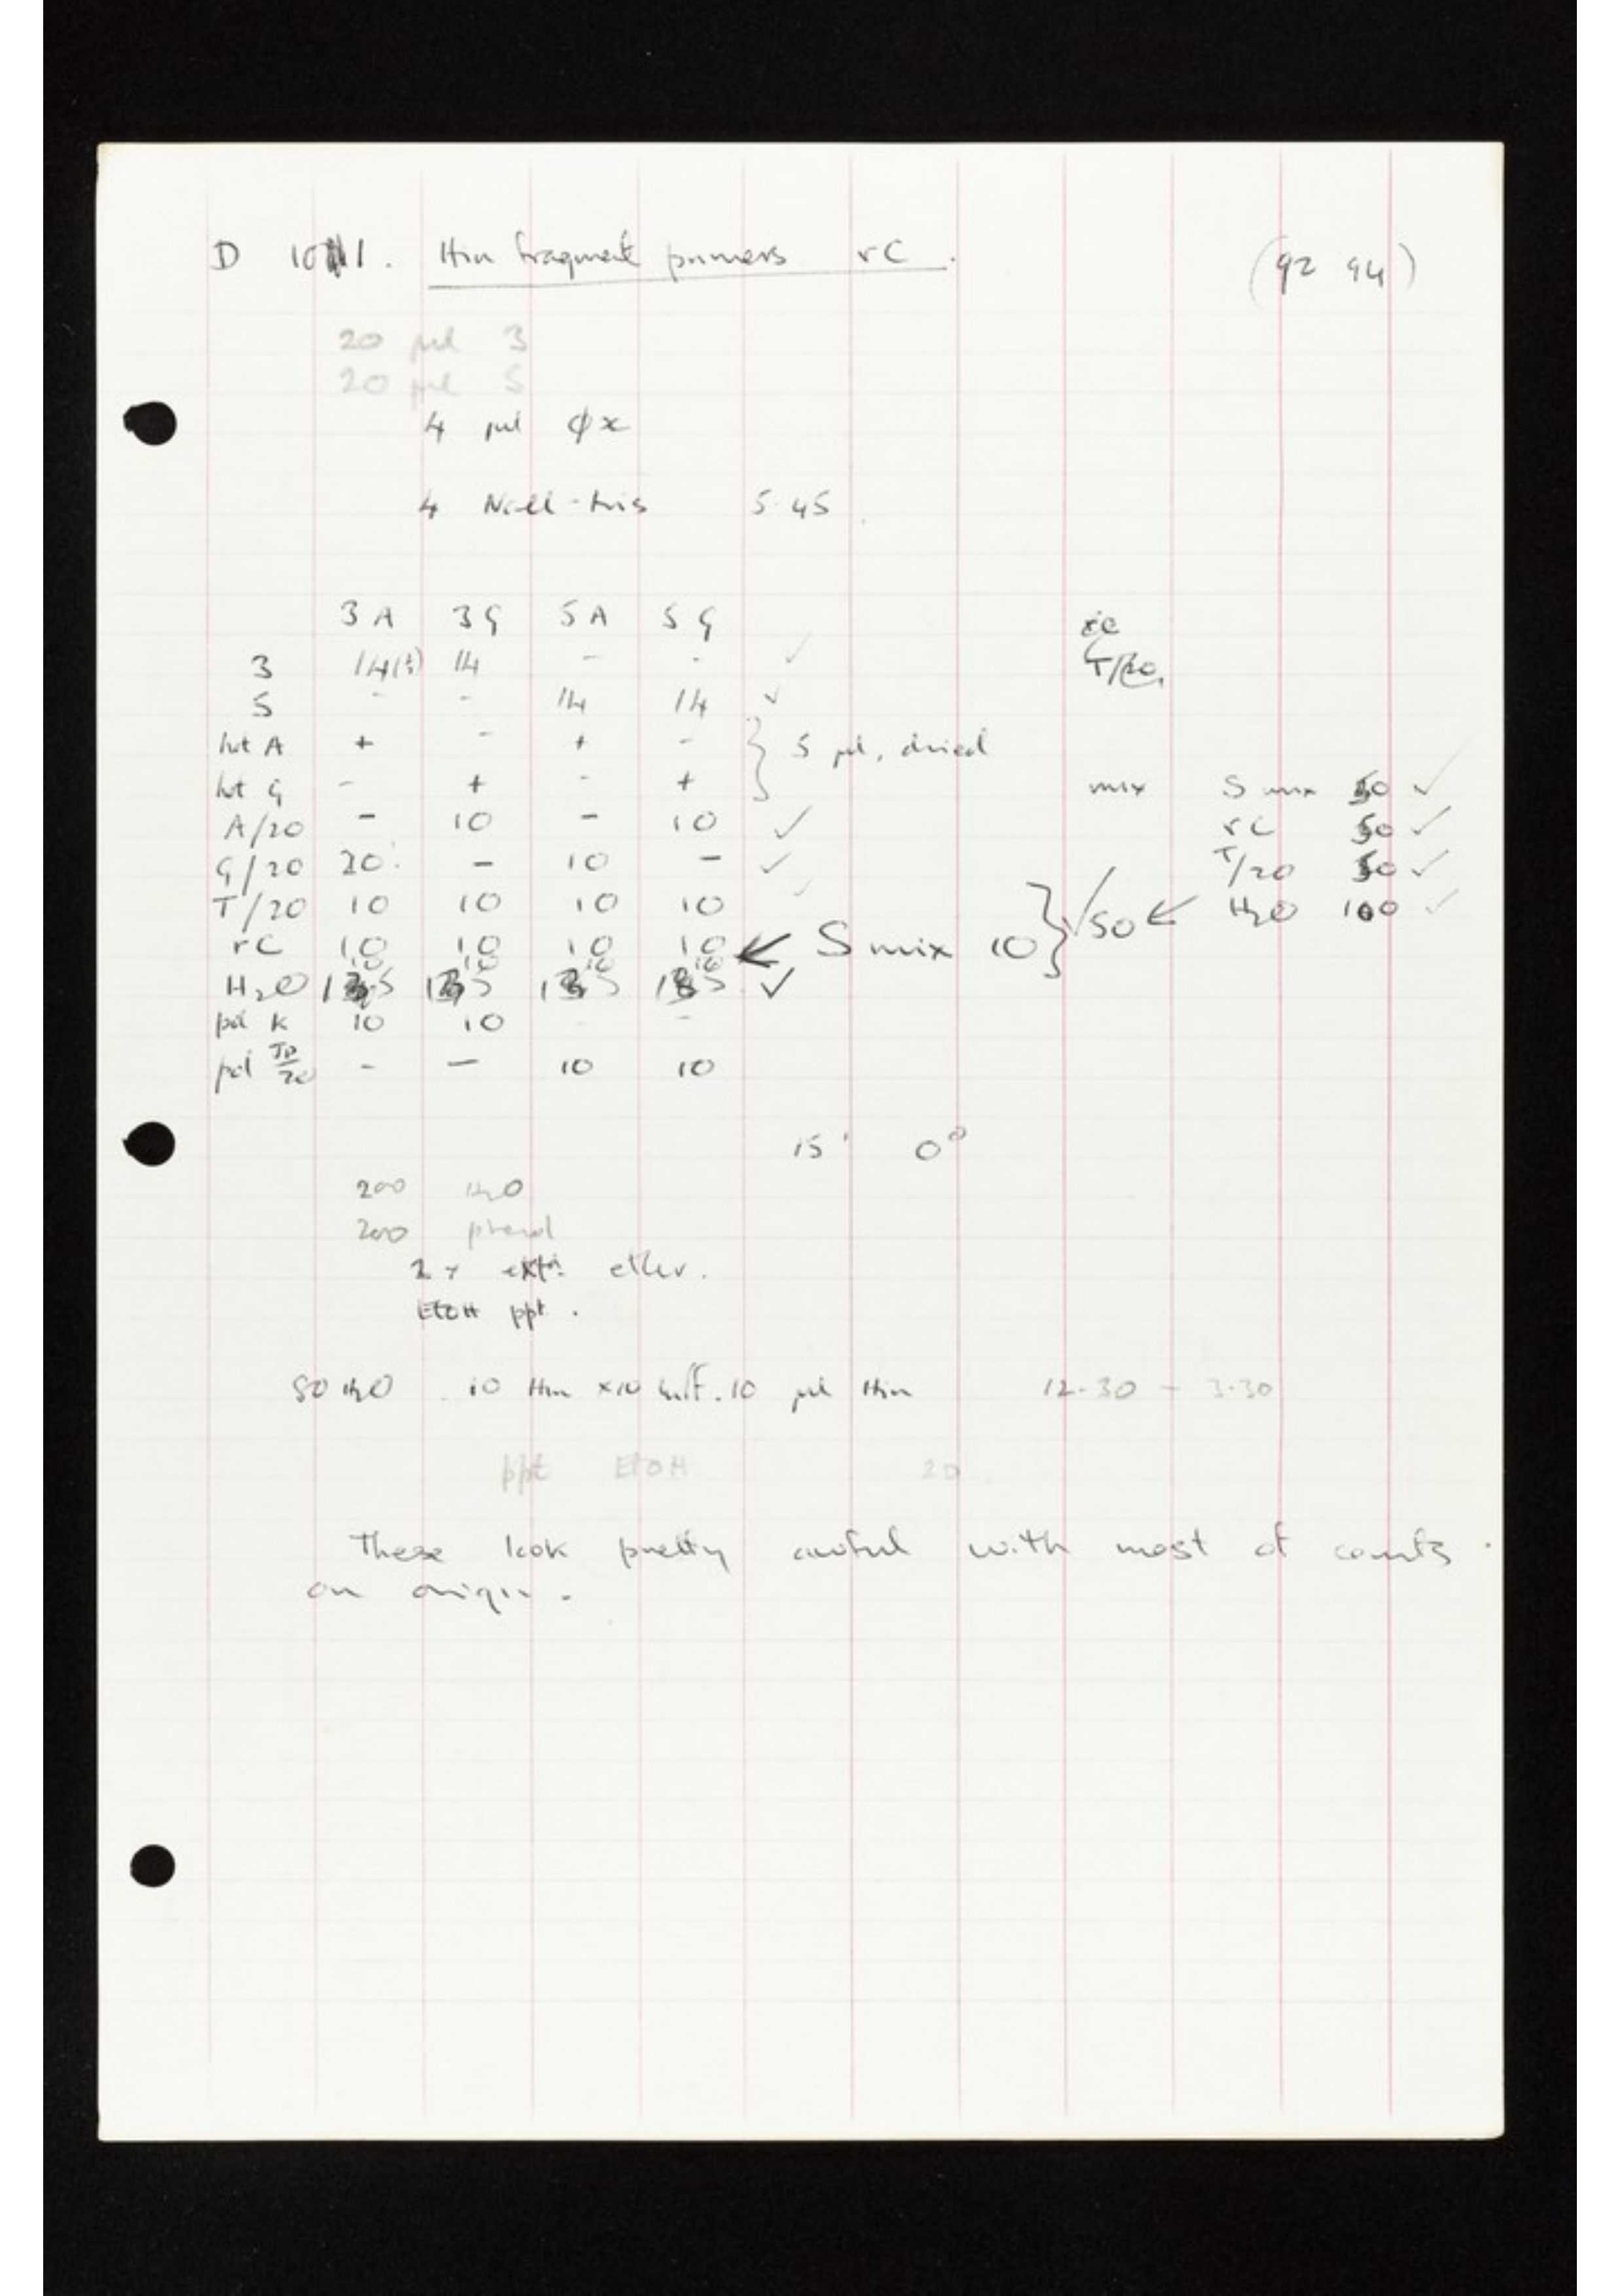 D 101. Hin fragment primers rC. (92 94)
20 μl 3
20 μl 5
4 μl φx
4 NaCl-tris 5.45
3A 3G 5A 5G
3 14 14 - - ✓
5 - - 14 14 ✓
hot A + - + -
hot G - + - + } 5 μl, dried
A/20 - 10 - 10 ✓
G/20 - 10 - ✓
T/20 10 10 10 10 ✓
rC 10 10 10 10 ← S mix 10 } ✓ 50 ←
H2O ✓
pol K 10 10 - -
pol - - 10 10
rC
T/20
mix S mix 50 ✓
rC 50 ✓
T/20 50 ✓
H2O 100 ✓
15' 0°
200 H2O
200 phenol
2 x extn ether.
EtOH ppt.
80 H2O 10 Hin x10 buff. 10 μl Hin 12.30 - 3.30
ppt EtOH 20
These look pretty awful with most of counts
on origin.